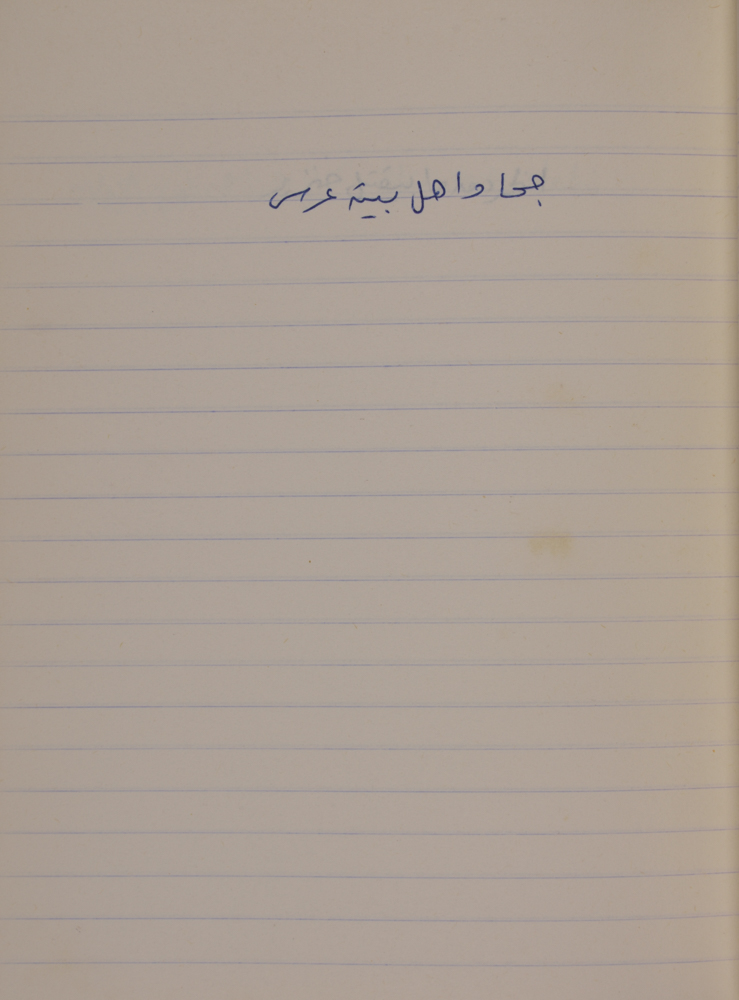 جحا واهل بيته عرس